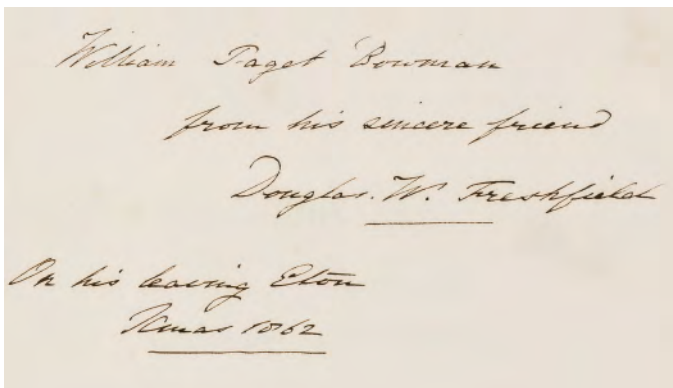 William Paget Bowman
from his sincere friend
Douglas. W. Freshfield
On his leaving Eton
Xmas 1862